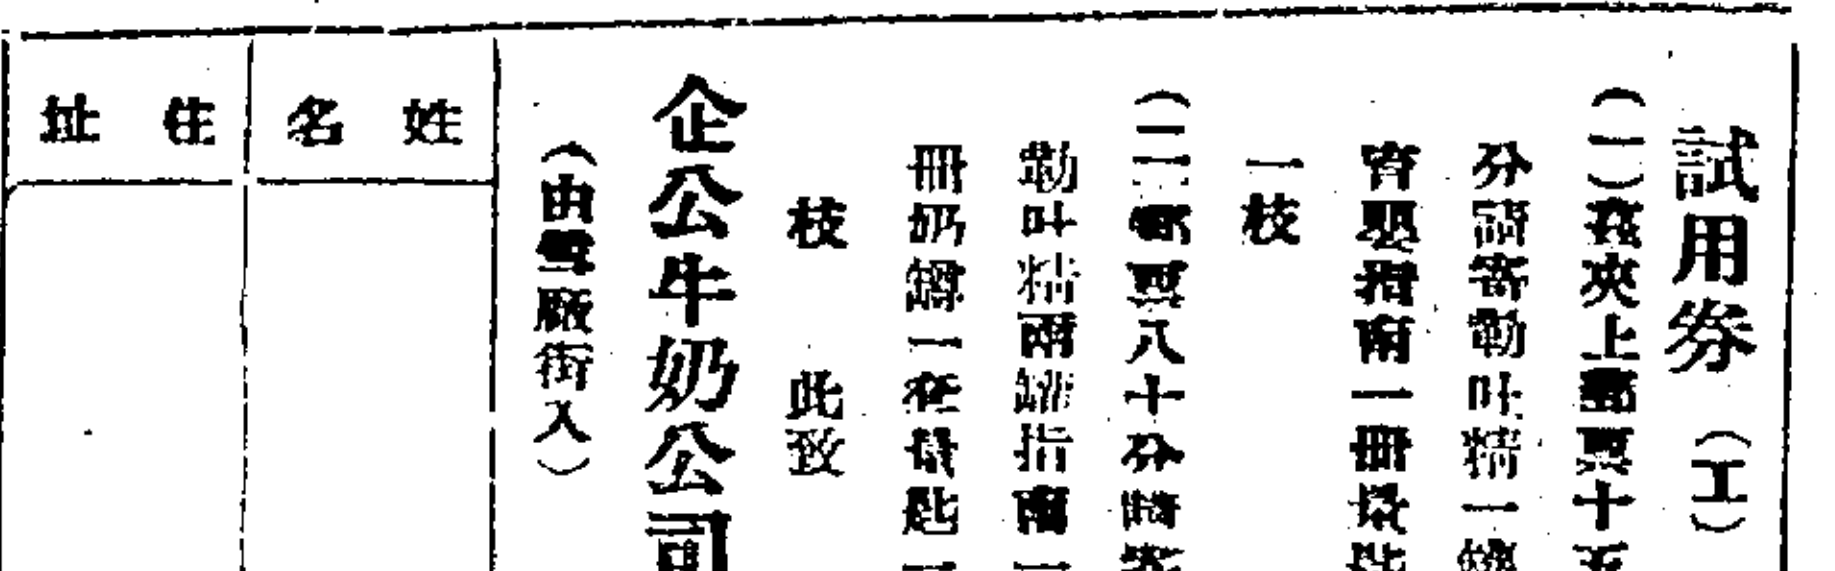 試用券（工）
（一）茲夾上郵票十五
分請寄勒吐精一罐
育嬰指南一冊量匙
一枝
（二）郵票八十分請寄
勒吐精兩罐指南一
冊奶罇一在量匙一
枝　此致
企公牛奶公司
（由雪廠街入）
姓名
住址